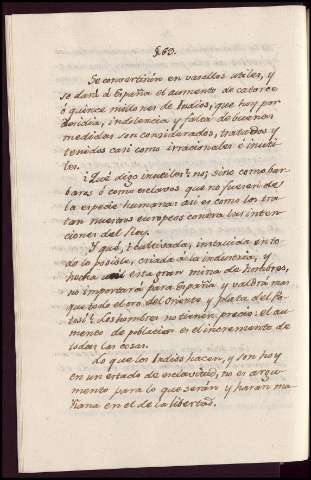 180.
Se convertirán en vasallos utiles, y
se dará á España el aumento de catorce
ó quince millones de Indios, que hoy por
desidia, indolencia y falta de buenas
medidas son considerados, tratados y
tenidos casi como irracionales é inuti-
les.
¿Qué digo inutiles? no; sino como bar-
bares ó como esclavos que no fuesen de
la especie humana: asi es como los tra-
tan nuestros europeos contra las inten-
ciones del Rey.
Y qué, ¿cultivada, instruida en to-
do lo posible, criada á la industria, y
hecha util esta gran mina de hombres,
no importará para España y valdrá mas
que todo el oro del Oriente y plata del Po-
tosí? Los hombres no tienen precio: el au-
mento de poblacion es el incremento de
todas las cosas.
Lo que los Indios hacen, y son hoy
en un estado de esclavitud, no es argu-
mento para lo que serán y harán ma-
ñana en el de la libertad.